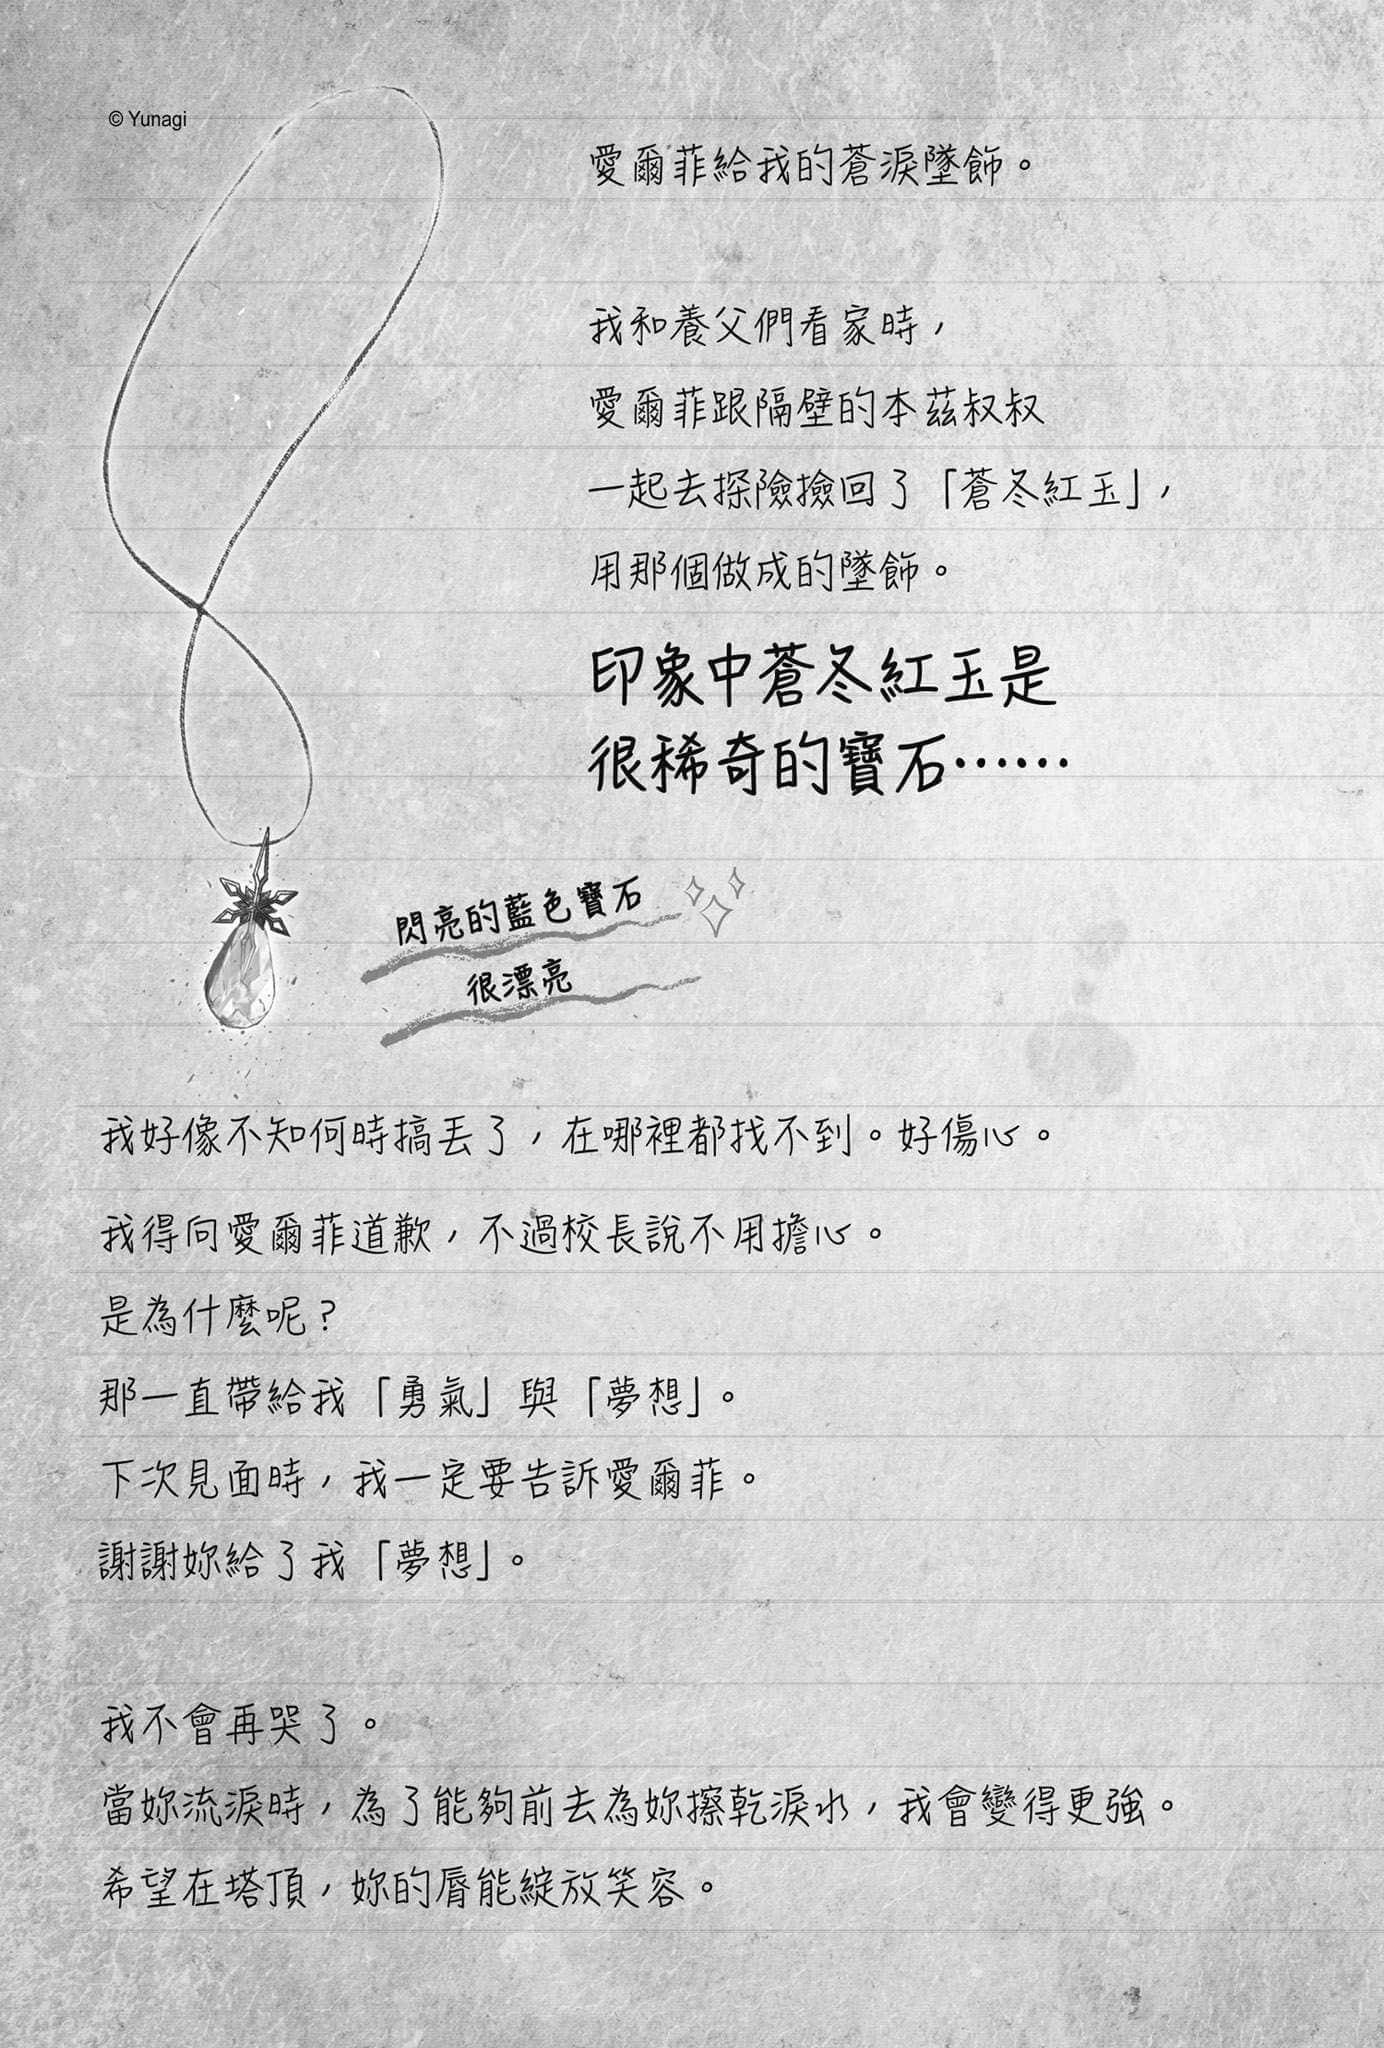 © Yunagi
愛爾菲給我的蒼淚墜飾。
我和養父們看家時，
愛爾菲跟隔壁的本茲叔叔
一起去探險撿回了「蒼冬紅玉」，
用那個做成的墜飾。
印象中蒼冬紅玉是
很稀奇的寶石……
閃亮的藍色寶石
很漂亮
我好像不知何時搞丟了，在哪裡都找不到。好傷心。
我得向愛爾菲道歉，不過校長說不用擔心。
是為什麼呢？
那一直帶給我「勇氣」與「夢想」。
下次見面時，我一定要告訴愛爾菲。
謝謝妳給了我「夢想」。
我不會再哭了。
當妳流淚時，為了能夠前去為妳擦乾淚水，我會變得更強。
希望在塔頂，妳的脣能綻放笑容。